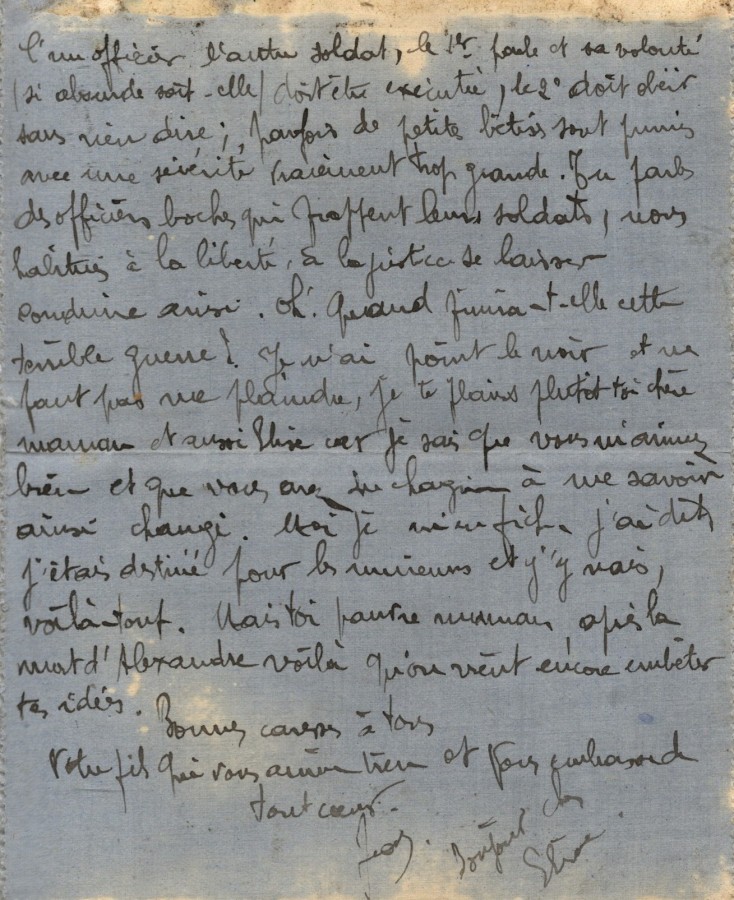 l'un officier l'autre soldat, le 1er parle et sa volonté
(si absurde soit-elle) doit être exécutée, le 2° doit obéir
sans rien dire ; parfois de petites bêtises sont punies
avec une sévérité vraiement trop grande. Tu parles
des officiers boches qui frappent leurs soldats, nous
habitués à la liberté, à la justice se laisser
conduire ainsi. Oh! Quand finira-t-elle cette
terrible guerre! Je n'ai point le noir et ne
faut pas me plaindre, je te plains plutôt toi chère
maman et aussi Elise car je sais que vous m'aimez
bien et que vous avez du chagrin à me savoir
ainsi changé. Moi je m'en fiche j'ai dit
j'étais destiné pour les mineurs et j'y vais,
voilà tout. Mais toi pauvre maman, après la
mort d'Alexandre voilà qu'on vient encore embêter
tes idées.
Bonnes caresses à tous
Votre fils qui vous aime bien et vous embrasse de
tout cœur.
Bonjour chez